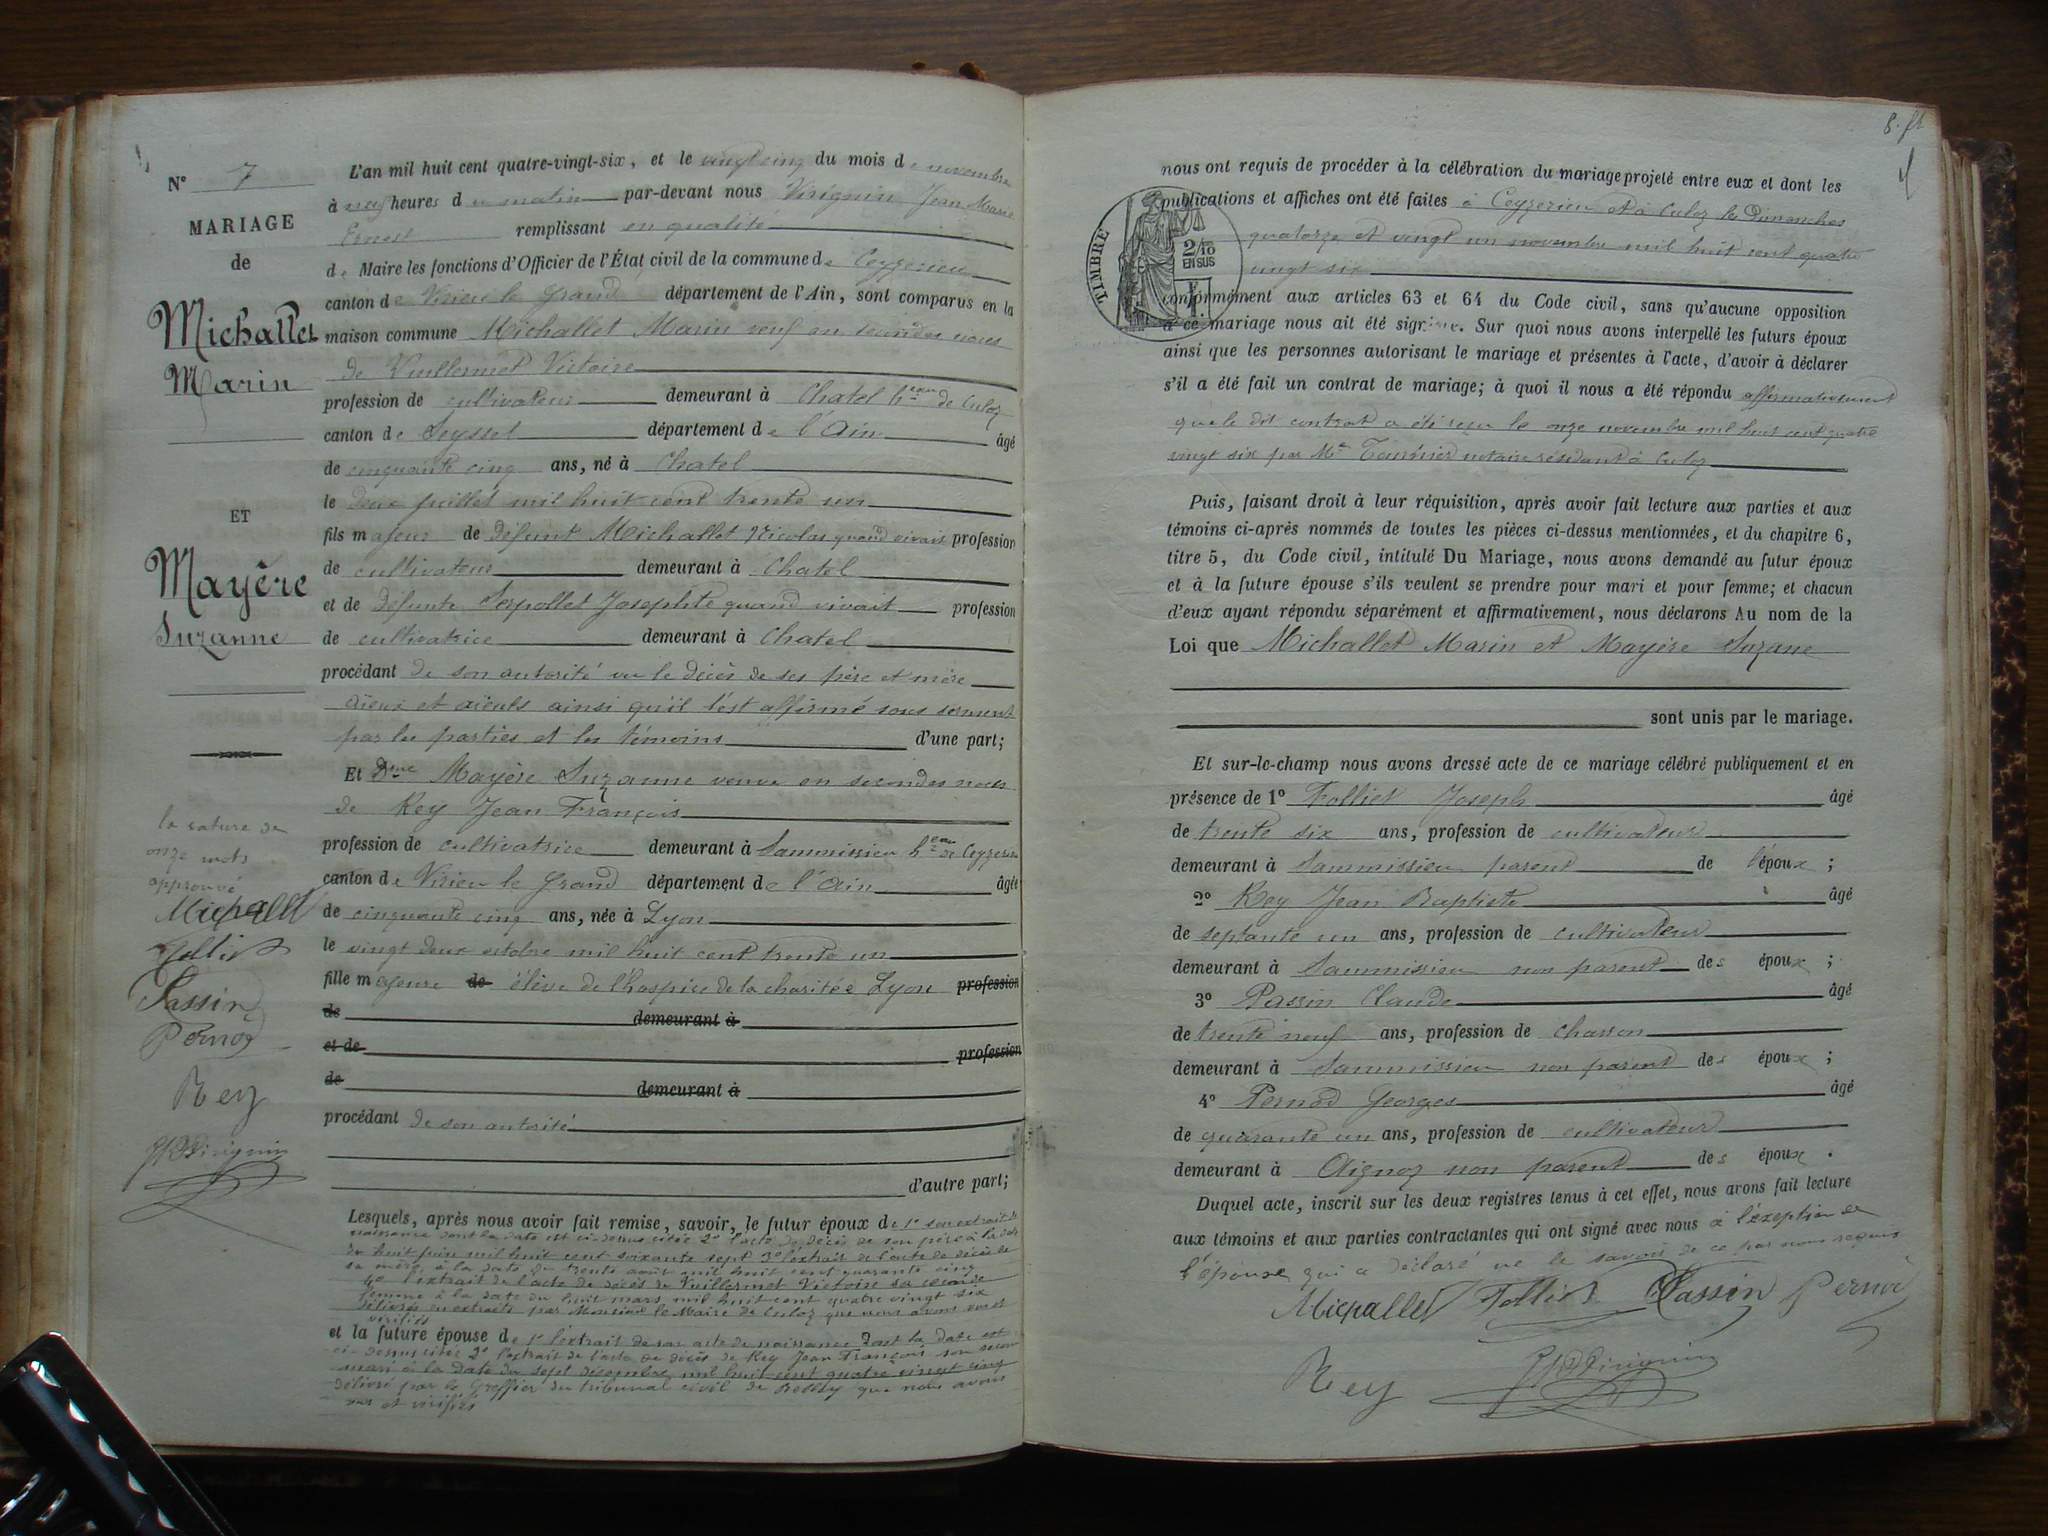 N° 7
MARIAGE
de
Michallet
Marin
ET
Mayère
Suzanne
la rature de
onze mots
approuvé
Michallet
Folliet
Passin
Pernod
Rey
L'an mil huit cent quatre-vingt-six, et le vingt cinq du mois de novembre
à neuf heures du matin par-devant nous Virignin Jean Marie
Ernest remplissant en qualité
de Maire les fonctions d'Officier de l'État civil de la commune de Ceyzerieu
canton de Virieu le Grand département de l'Ain, sont comparus en la
maison commune Michallet Marin veuf en secondes noces
de Vuillermet Victoire
profession de cultivateur demeurant à Chatel heau de Culoz
canton de Seyssel département de l'Ain âgé
de cinquante cinq ans, né à Chatel
le deux juillet mil huit cent trente un
fils majeur de défunt Michallet Nicolas quand vivait profession
de cultivateur demeurant à Chatel
et de défunte Serpollet Josephte quand vivait profession
de cultivatrice demeurant à Chatel
procédant de son autorité vu le décès de ses père et mère
aïeux et aïeuls ainsi qu'il l'est affirmé sous serment
par les parties et les témoins d'une part;
Et Dme Mayère Suzanne veuve en secondes noces
de Rey Jean François
profession de cultivatrice demeurant à Sammissieu heau de Ceyzerieu
canton de Virieu le Grand département de l'Ain âgée
de cinquante cinq ans, née à Lyon
le vingt deux octobre mil huit cent trente un
fille majeure de élève de l'hospice de la charité à Lyon profession
de demeurant à
et de profession
de demeurant à
procédant de son autorité
d'autre part;
Lesquels, après nous avoir fait remise, savoir, le futur époux de 1° son extrait de
naissance dont la date est ci-dessus citée 2° l'acte de décès de son père à la date
du huit juin mil huit cent soixante sept 3° l'extrait de l'acte de décès de
sa mère, à la date du trente août mil huit cent quarante cinq
4° l'extrait de l'acte de décès de Vuillermet Victoire sa seconde
femme à la date du huit mars mil huit cent quatre vingt six
délivrés en extraits par Monsieur le Maire de Culoz que nous avons vus et
vérifiés
et la future épouse de 1° l'extrait de son acte de naissance dont la date est
ci-dessus citée 2° l'extrait de l'acte de décès de Rey Jean François son second
mari à la date du sept décembre mil huit cent quatre vingt cinq
délivré par le Greffier du tribunal civil de Belley que nous avons
vus et vérifiés
nous ont requis de procéder à la célébration du mariage projeté entre eux et dont les
publications et affiches ont été faites à Ceyzerieu et à Culoz les Dimanches
quatorze et vingt un novembre mil huit cent quatre
vingt six
TIMBRE
2/10
EN SUS
conformément aux articles 63 et 64 du Code civil, sans qu'aucune opposition
à ce mariage nous ait été signifiée. Sur quoi nous avons interpellé les futurs époux
ainsi que les personnes autorisant le mariage et présentes à l'acte, d'avoir à déclarer
s'il a été fait un contrat de mariage; à quoi il nous a été répondu affirmativement
que le dit contrat a été reçu le onze novembre mil huit cent quatre
vingt six par Me notaire résidant à Culoz
Puis, faisant droit à leur réquisition, après avoir fait lecture aux parties et aux
témoins ci-après nommés de toutes les pièces ci-dessus mentionnées, et du chapitre 6,
titre 5, du Code civil, intitulé Du Mariage, nous avons demandé au futur époux
et à la future épouse s'ils veulent se prendre pour mari et pour femme; et chacun
d'eux ayant répondu séparément et affirmativement, nous déclarons Au nom de la
Loi que Michallet Marin et Mayère Suzane
sont unis par le mariage.
Et sur-le-champ nous avons dressé acte de ce mariage célébré publiquement et en
présence de 1° Folliet Joseph âgé
de trente six ans, profession de cultivateur
demeurant à Sammissieu parent de l'époux ;
2° Rey Jean Baptiste âgé
de septante un ans, profession de cultivateur
demeurant à Sammissieu non parent des époux ;
3° Passin Claude âgé
de trente neuf ans, profession de charron
demeurant à Sammissieu non parent des époux ;
4° Pernod Georges âgé
de quarante un ans, profession de cultivateur
demeurant à Aignoz non parent des époux .
Duquel acte, inscrit sur les deux registres tenus à cet effet, nous avons fait lecture
aux témoins et aux parties contractantes qui ont signé avec nous à l'exeption de
l'épouse qui a déclaré ne le savoir de ce par nous requis
Michallet Folliet Passin Pernod
Rey